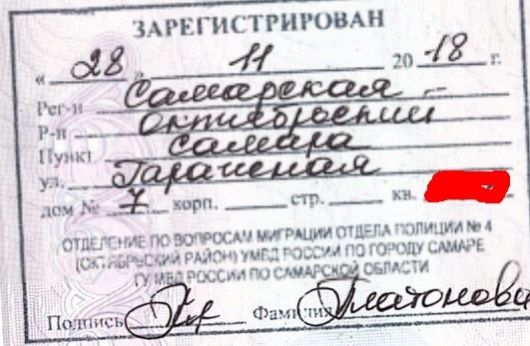 ЗАРЕГИСТРИРОВАН
« 28 » 11 20 18 г.
Рег-н Самарская
Р-н Октябрьский
Пункт Самара
ул. Гаражная
дом № 7 корп. стр. кв.
ОТДЕЛЕНИЕ ПО ВОПРОСАМ МИГРАЦИИ ОТДЕЛА ПОЛИЦИИ № 4
(ОКТЯБРЬСКИЙ РАЙОН) УМВД РОССИИ ПО ГОРОДУ САМАРЕ
ГУ МВД РОССИИ ПО САМАРСКОЙ ОБЛАСТИ
Подпись Фамилия Платонова